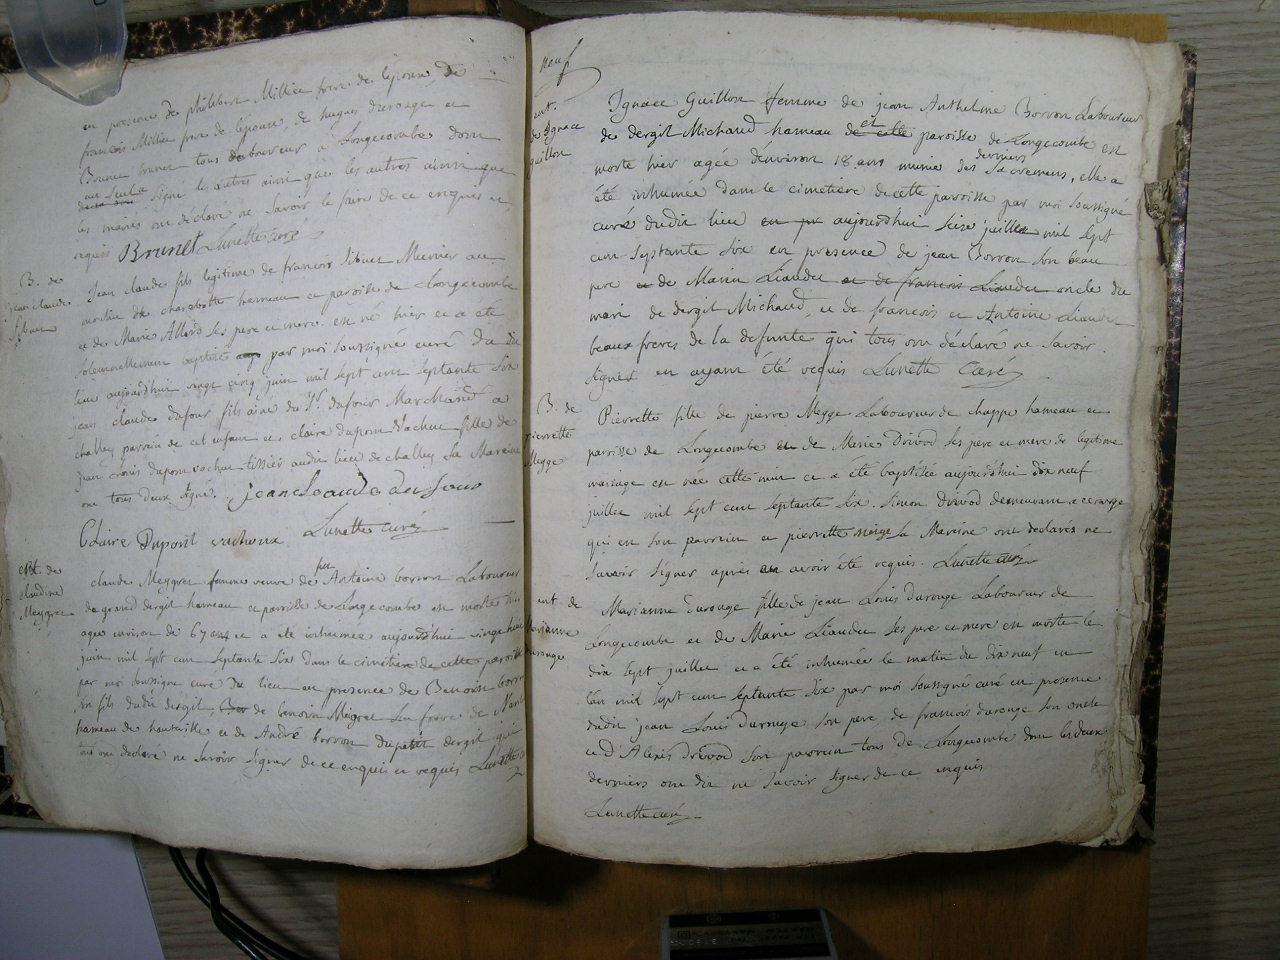 en presence de philibert Millier frere de l'epouse, de
francois Millier pere de l'epouse, de hugues durouge et
Brunet tous laboureur a Longecombe dont
un seul a signé les autres ainsi que les autres ainsi que
les mariés ont declaré ne savoir le faire de ce enquis et
requis Brunet Lunette curé
B. de
jean claude
Sibuet
Jean claude fils legitime de francois Sibuet Meunier au
moulin de charabotte hameau et paroisse de Longecombe
et de Marie Allard ses pere et mere est né hier et a été
solemnellement baptisé par moi soussigné curé du dit
lieu aujourdhui vingt cinq juin mil sept cent septante six
jean claude dufour fils ainé du Sr. dufour Marchand a
challey parrain de cet enfant et claire dupont Vachou fille de
jean louis dupont vachou tissier audit lieu de challey la Mareine
ont tous deux signé. jean claude dufour
Claire Dupont vachoux Lunette curé
ent. de
claudine
Meygret
claude Meygret femme veuve de feu Antoine borron Laboureur
de grand dergit hameau et paroisse de Longecombe est morte hier
agee environ de 67 ans et a été inhumée aujourdhui vingt huit
juin mil sept cent septante six dans le cimetière de cette paroisse
par moi soussigné curé du lieu en presence de Benoist borron
son fils dudit dergit, de benoist Meigret son frere de
hameau de hauteville et de André borron dupetit dergit qui
tous ont declaré ne savoir signer de ce enquis et requis Lunette
neuf
ent.
de Ignace
guillon
Ignace Guillon femme de jean Anthelme Borron Laboureur
de dergit Michaud hameau de cette et paroisse de Longecombe est
morte hier agée d'environ 18 ans munie des derniers Sacremens, elle a
été inhumée dans le cimetiere de cette paroisse par moi soussigné
curé dudit lieu aujourdhui seize juillet mil sept
cent septante six en presence de jean Borron son beau
pere de Marin Liaudet et de francois Liaudet oncle du
mari de dergit Michaud, et de francois et Antoine Liaudet
beaux freres de la defunte qui tous ont déclaré ne savoir
signer en ayant été requis Lunette Curé
B. de
pierrette
Megge
Pierrette fille de pierre Megge Laboureur de chappe hameau et
paroisse de Longecombe et de Marie Drivod ses pere et mere de legitime
mariage est née cette nuit et a été baptisée aujourdhui dix neuf
juillet mil sept cent septante six. Simon drivod demeurant a
qui est son parrain et pierrette meige la Mareine ont declarés ne
savoir signer après en avoir été requis. Lunette curé
ent. de
Marianne
durouge
Marianne durouge fille de jean Louis durouge Laboureur de
Longecombe et de Marie Liaudet ses pere et mere est morte le
dix sept juillet et a été inhumée le matin du dix neuf en
l'an mil sept cent septante six par moi soussigné curé en presence
dudit jean Louis durouge son pere, de francois durouge son oncle
et d'Alexis drivod son parrain tous de Longecombe dont les deux
derniers ont dit ne savoir signer de ce enquis
Lunette curé